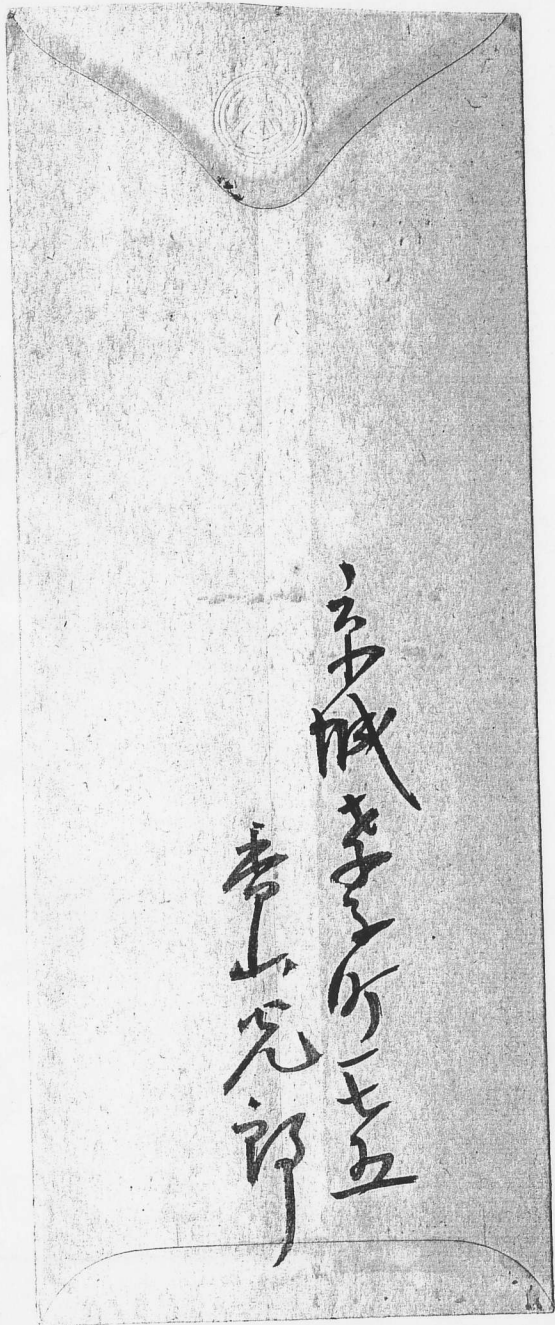 京城孝子町一七五
香山光郎